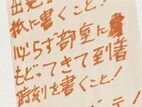 紙に書くこと!
必らず部室に
もどってきて到着
時刻を書くこと!